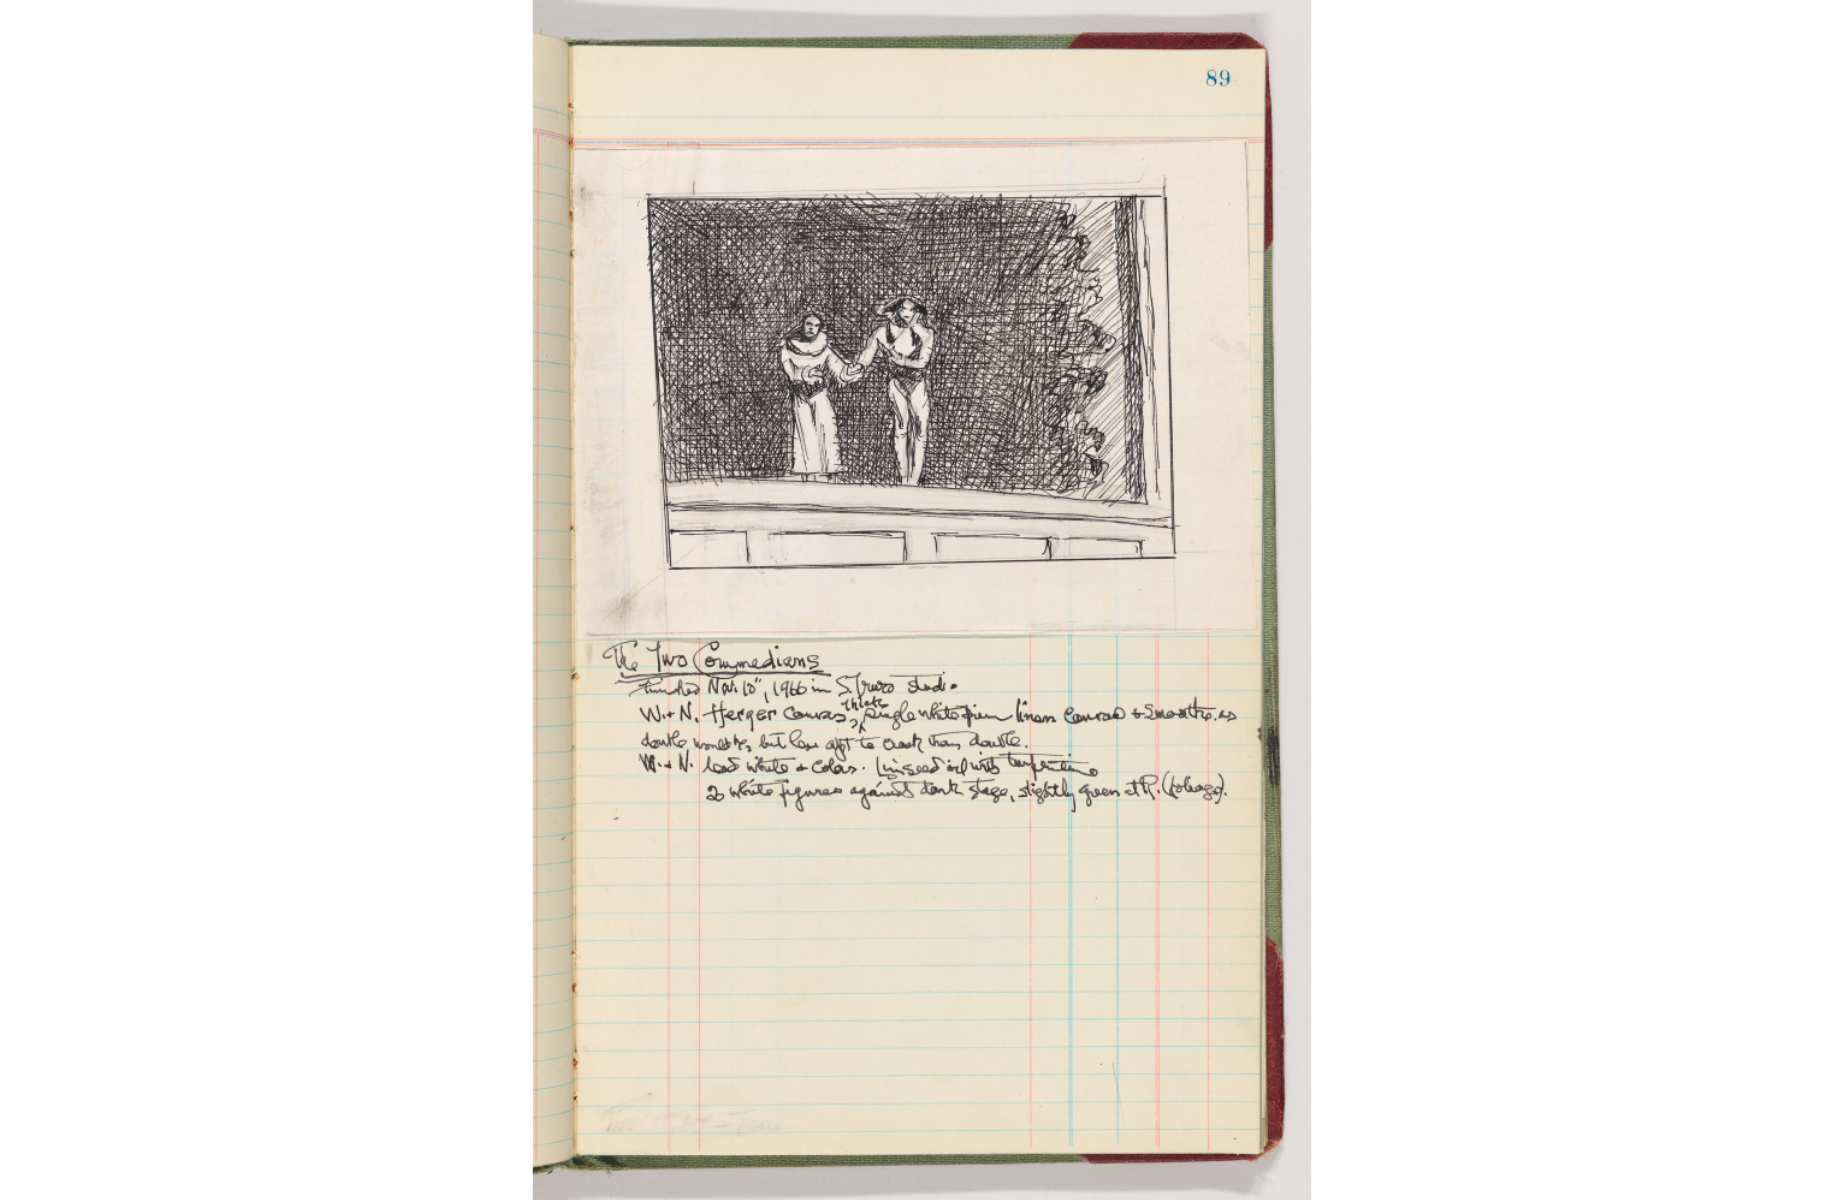 89
The Two Commedians
Finished Nov. 10", 1966 in S. Truro studio.
W. & N. Herger Canvas, thick single white firm linen canvas
double would be, but less apt to crack than double.
W. & N. lead white & colors. Linseed oil with turpentine
2 white figures against dark stage, slightly green at R. (foliage).